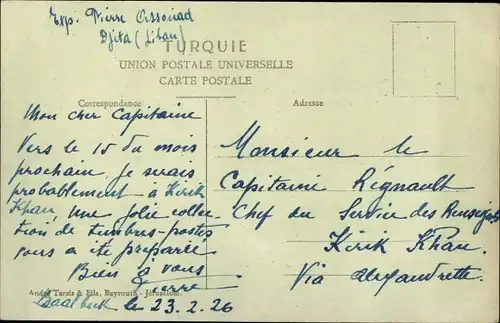 Exp. Pierre Assouad
Djita (Liban)
TURQUIE
UNION POSTALE UNIVERSELLE
CARTE POSTALE
Correspondance
Adresse
Mon cher Capitaine
Vers le 15 du mois
prochain, je serais
probablement à Kirik
Khan, Une jolie collec
tion de timbres-postes
vous a été préparée
Bien à vous
Pierre
André Terzis & Fils, Beyrouth - Jérusalem.
Baalbeck le 23.2.26
Monsieur le
Capitaine Régnault
Chef du Service des Renseig
Kirik Khan
Via Alexandrette